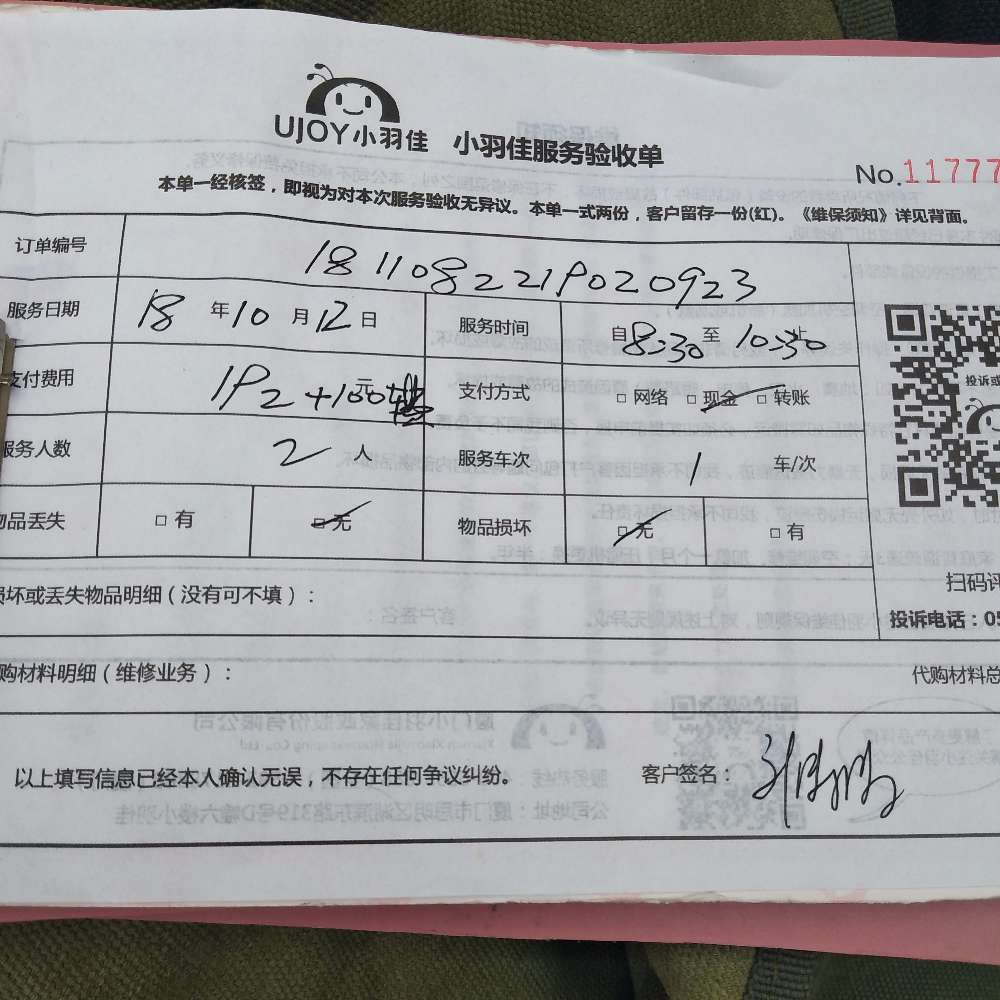 UJOY小羽佳 小羽佳服务验收单
No.11777
本单一经核签，即视为对本次服务验收无异议。本单一式两份，客户留存一份(红)。《维保须知》详见背面。
订单编号 1811082219020923
服务日期 18年10月12日 服务时间 自8:30至10:30止
支付费用 192+100元 支付方式 □网络 □现金 □转账
服务人数 2人 服务车次 1车/次
物品丢失 □有 □无 物品损坏 □无 □有
投诉或
扫码评
损坏或丢失物品明细(没有可不填)：
投诉电话：05
购材料明细(维修业务)： 代购材料总
以上填写信息已经本人确认无误，不存在任何争议纠纷。 客户签名：